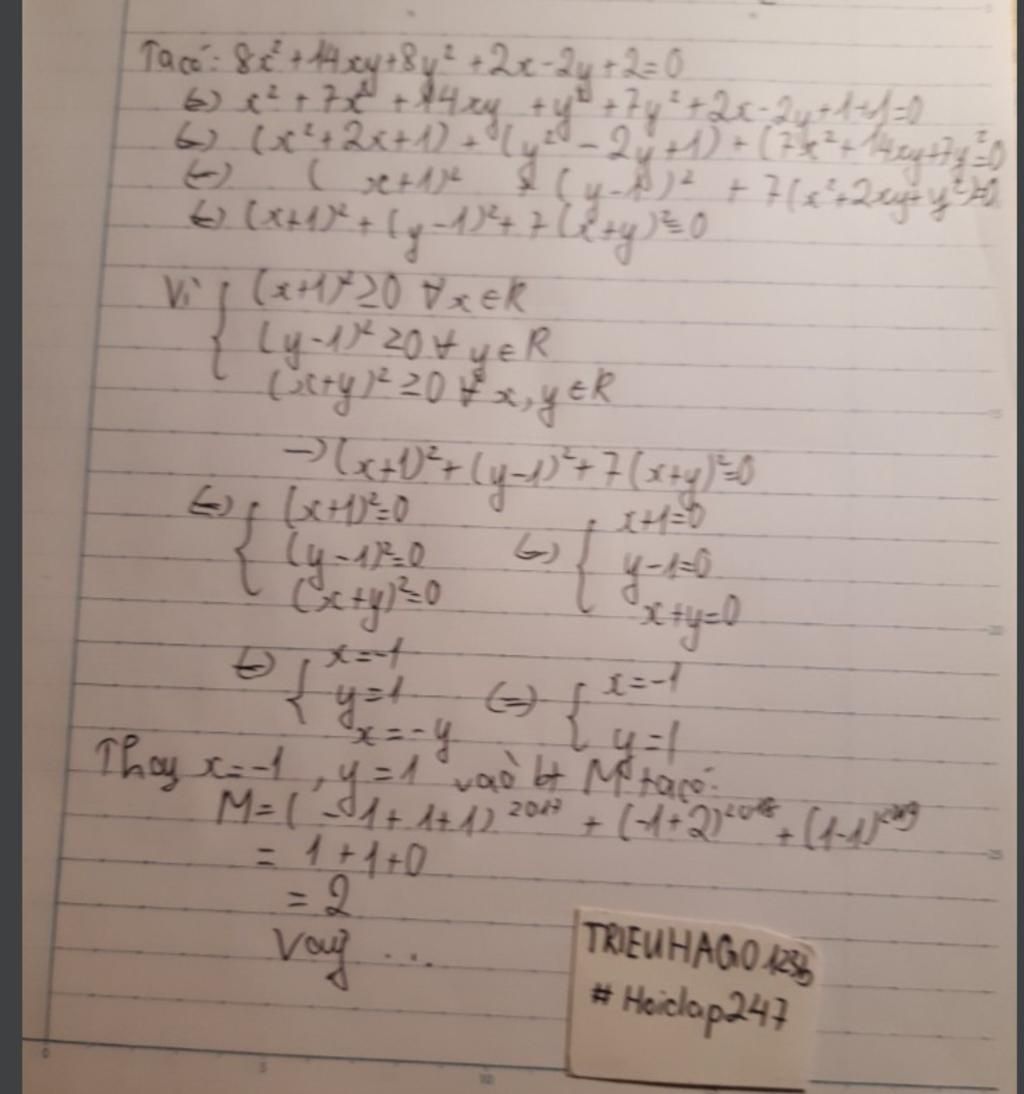 Ta có: 8x² + 14xy + 8y² + 2x - 2y + 2 = 0
(=) x² + 7x² + 14xy + y² + 7y² + 2x - 2y + 1 + 1 = 0
(=) (x² + 2x + 1) + (y² - 2y + 1) + (7x² + 14xy + 7y² = 0
(=) (x+1)² + (y-1)² + 7(x² + 2xy + y²) = 0
(=) (x+1)² + (y-1)² + 7(x+y)² = 0
Vì { (x+1)² ≥ 0 ∀ x ∈ R
(y-1)² ≥ 0 ∀ y ∈ R
(x+y)² ≥ 0 ∀ x, y ∈ R
→ (x+1)² + (y-1)² + 7(x+y)² = 0
(=) { (x+1)² = 0 (=) { x+1=0
(y-1)² = 0 y-1=0
(x+y)² = 0 x+y=0
(=) { x=-1 (=) { x=-1
y=1 y=1
x=-y
Thay x=-1, y=1 vào bt M ta có:
M = (-1+1+1)²⁰¹⁷ + (-1+2)²⁰¹⁸ + (1-1)²⁰¹⁹
= 1+1+0
= 2
Vậy ...
TRIEUHAGO
# Hoidap247
0 5 10